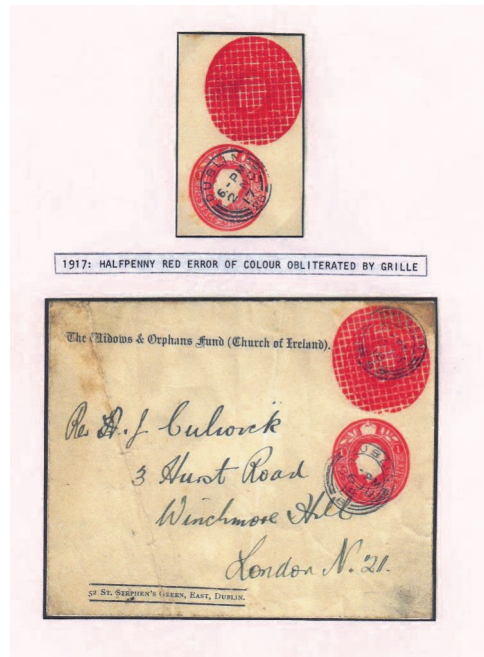 DUBLIN
1917: HALFPENNY RED ERROR OF COLOUR OBLITERATED BY GRILLE
The Widows & Orphans Fund (Church of Ireland).
Rev A. J. Culwick
3 Hurst Road
Winchmore Hill
London N. 21.
52 ST. STEPHEN'S GREEN, EAST, DUBLIN.